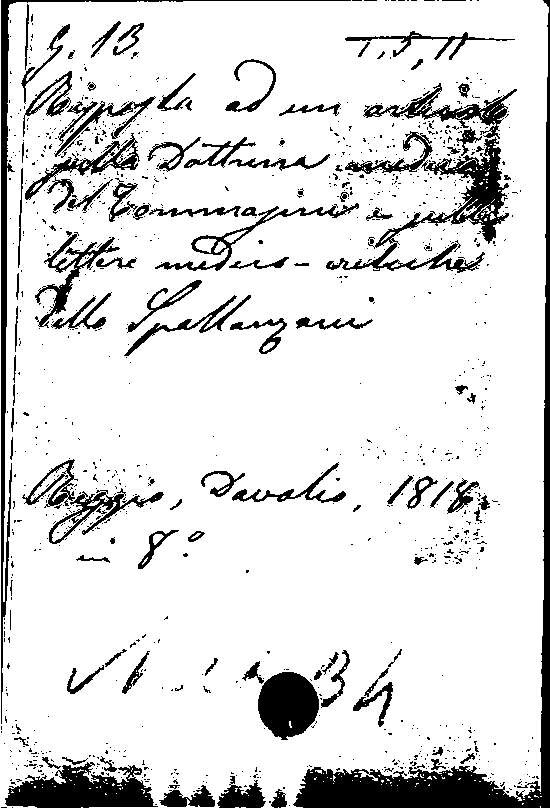 G. 13. T. 5, 11
Risposta ad un articolo
sulla Dottrina medica
del Tommasini e sulle
lettere medico-critiche
dello Spallanzani
Reggio, Davolio, 1818.
in 8.º